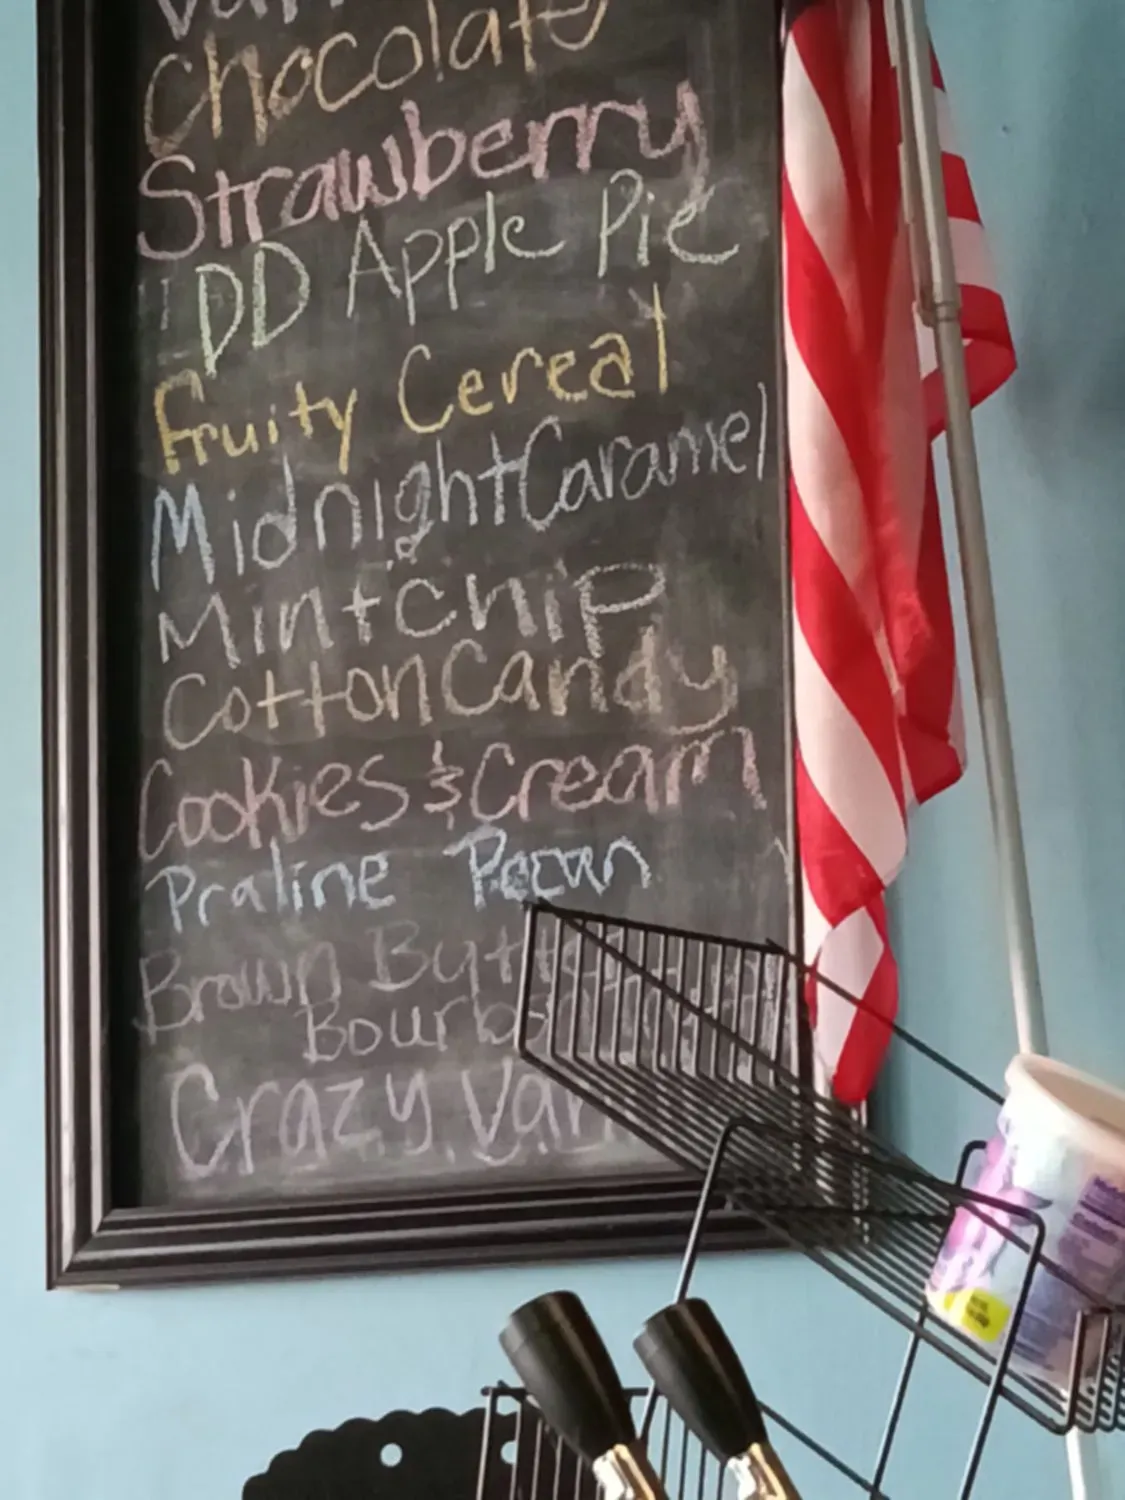 Chocolate
Strawberry
DD Apple Pie
Fruity Cereal
Midnight Caramel
Mint Chip
Cotton Candy
Cookies & Cream
Praline Pecan
Brown Butter
Bourbon
Crazy Van